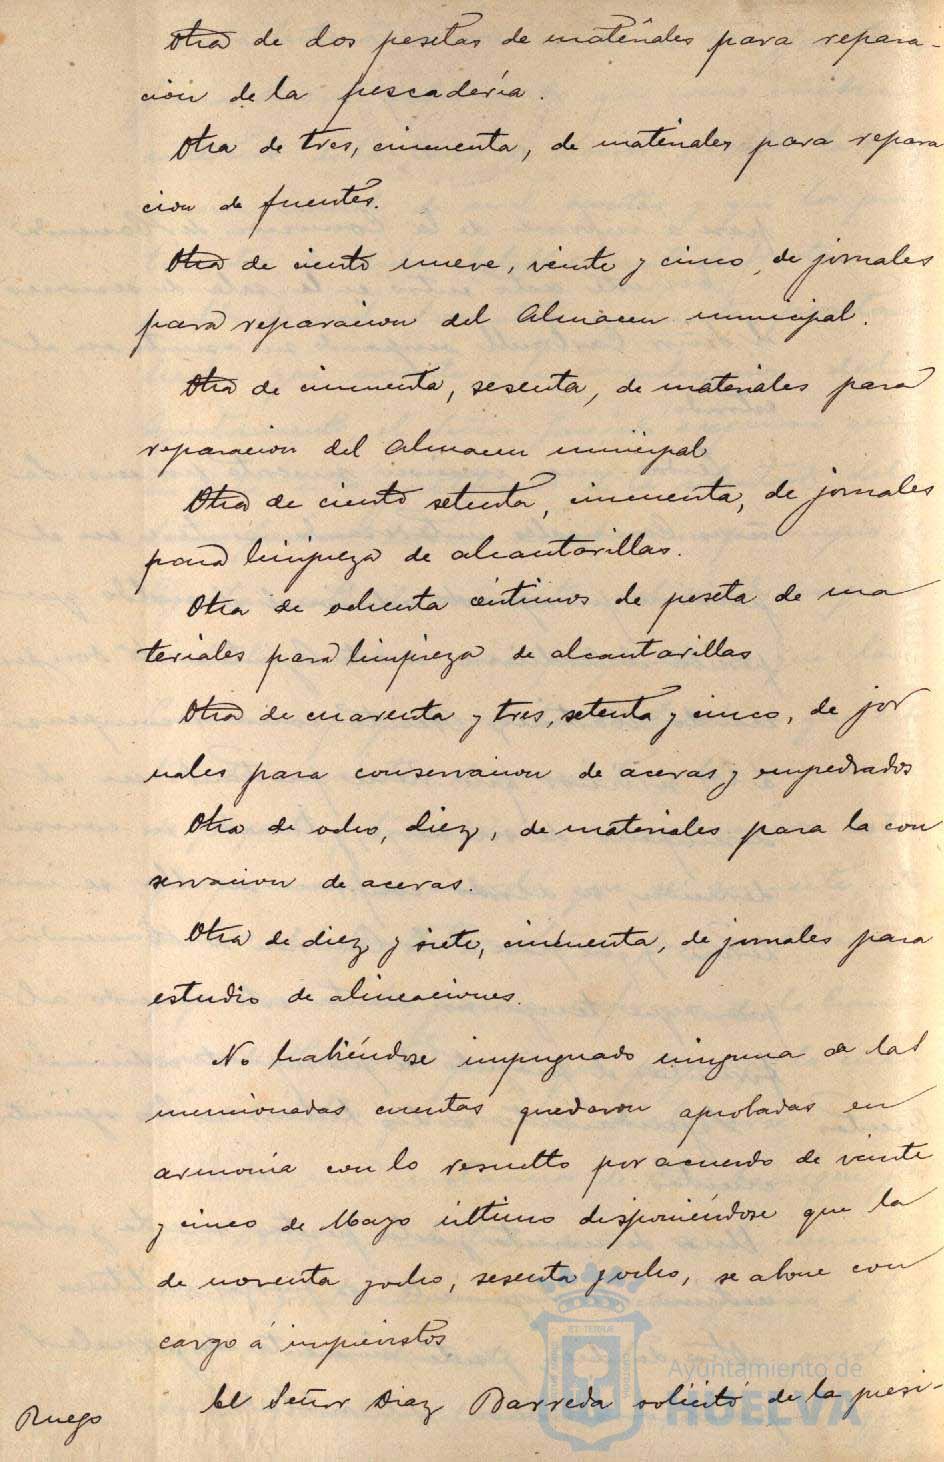 Otra de dos pesetas de materiales para repara-
cion de la pescadería.
Otra de tres, cincuenta, de materiales para repara
cion de fuentes.
Otra de ciento nueve, veinte y cinco, de jornales
para reparacion del Almacen municipal.
Otra de cincuenta, sesenta, de materiales para
reparacion del Almacen municipal
Otra de ciento setenta, cincuenta, de jornales
para limpieza de alcantarillas.
Otra de ochenta céntimos de peseta de ma
teriales para limpieza de alcantarillas
Otra de cuarenta y tres, setenta y cinco, de jor
nales para conservacion de aceras y empedrados
Otra de ocho, diez, de materiales para la con
servacion de aceras.
Otra de diez y siete, cincuenta, de jornales para
estudio de alineaciones.
No habiéndose impugnado ninguna de las
mencionadas cuentas quedaron aprobadas en
armonía con lo resuelto por acuerdo de veinte
y cinco de Mayo último disponiéndose que la
de noventa y ocho, sesenta y ocho, se abone con
cargo á imprevistos
Ruego
El Señor Diaz Barreda solicitó de la presi-
Ayuntamiento de
HUELVA